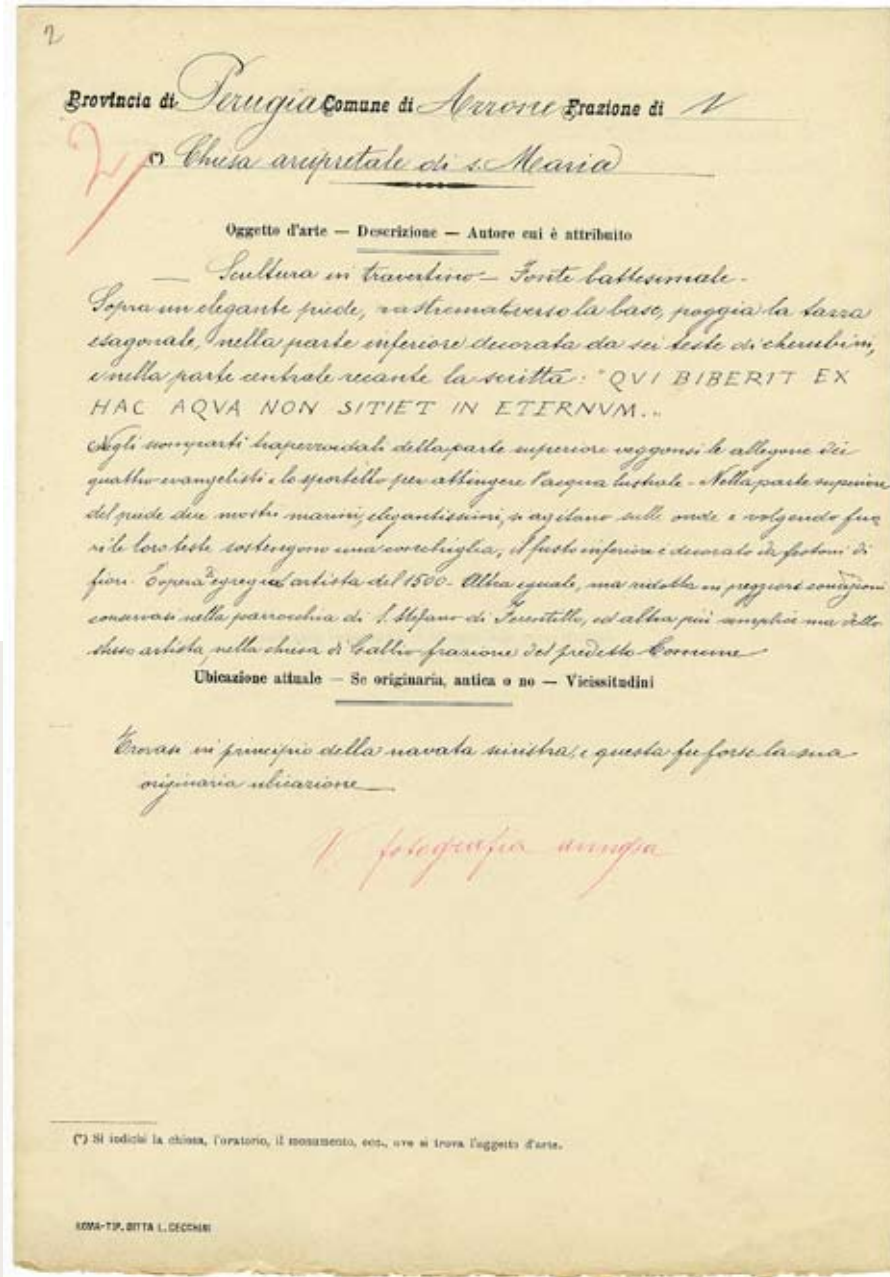 2
Provincia di Perugia Comune di Arrone Frazione di
2/
(*) Chiesa arcipretale di s. Maria
Oggetto d'arte — Descrizione — Autore cui è attribuito
— Scultura in travertino — Fonte battesimale -
Sopra un elegante piede, rastremato verso la base, poggia la tazza
esagonale, nella parte inferiore decorata da sei teste di cherubini,
e nella parte centrale recante la scritta: "QVI BIBERIT EX
HAC AQVA NON SITIET IN ETERNVM.„
Negli scomparti trapezoidali della parte superiore veggonsi le allegorie dei
quattro evangelisti e lo sportello per attingere l'acqua lustrale - Nella parte superiore
del piede due mostri marini, elegantissimi, si agitano sulle onde e volgendo fuo
ri le loro teste sostengono una conchiglia, il fusto inferiore è decorato da festoni di
fiori. È opera d'egregio artista del 1500 - Altra eguale, ma ridotta in peggiori condizioni
conservasi nella parrocchia di S. Stefano di Ferentillo, ed altra più semplice ma dello
stesso artista, nella chiesa di frazione del predetto Comune
Ubicazione attuale — Se originaria, antica o no — Vicissitudini
Trovasi in principio della navata sinistra, e questa fu forse la sua
originaria ubicazione
V. fotografia annessa
(*) Si indichi la chiesa, l'oratorio, il monumento, ecc., ove si trova l'oggetto d'arte.
ROMA-TIP. DITTA L. CECCHINI